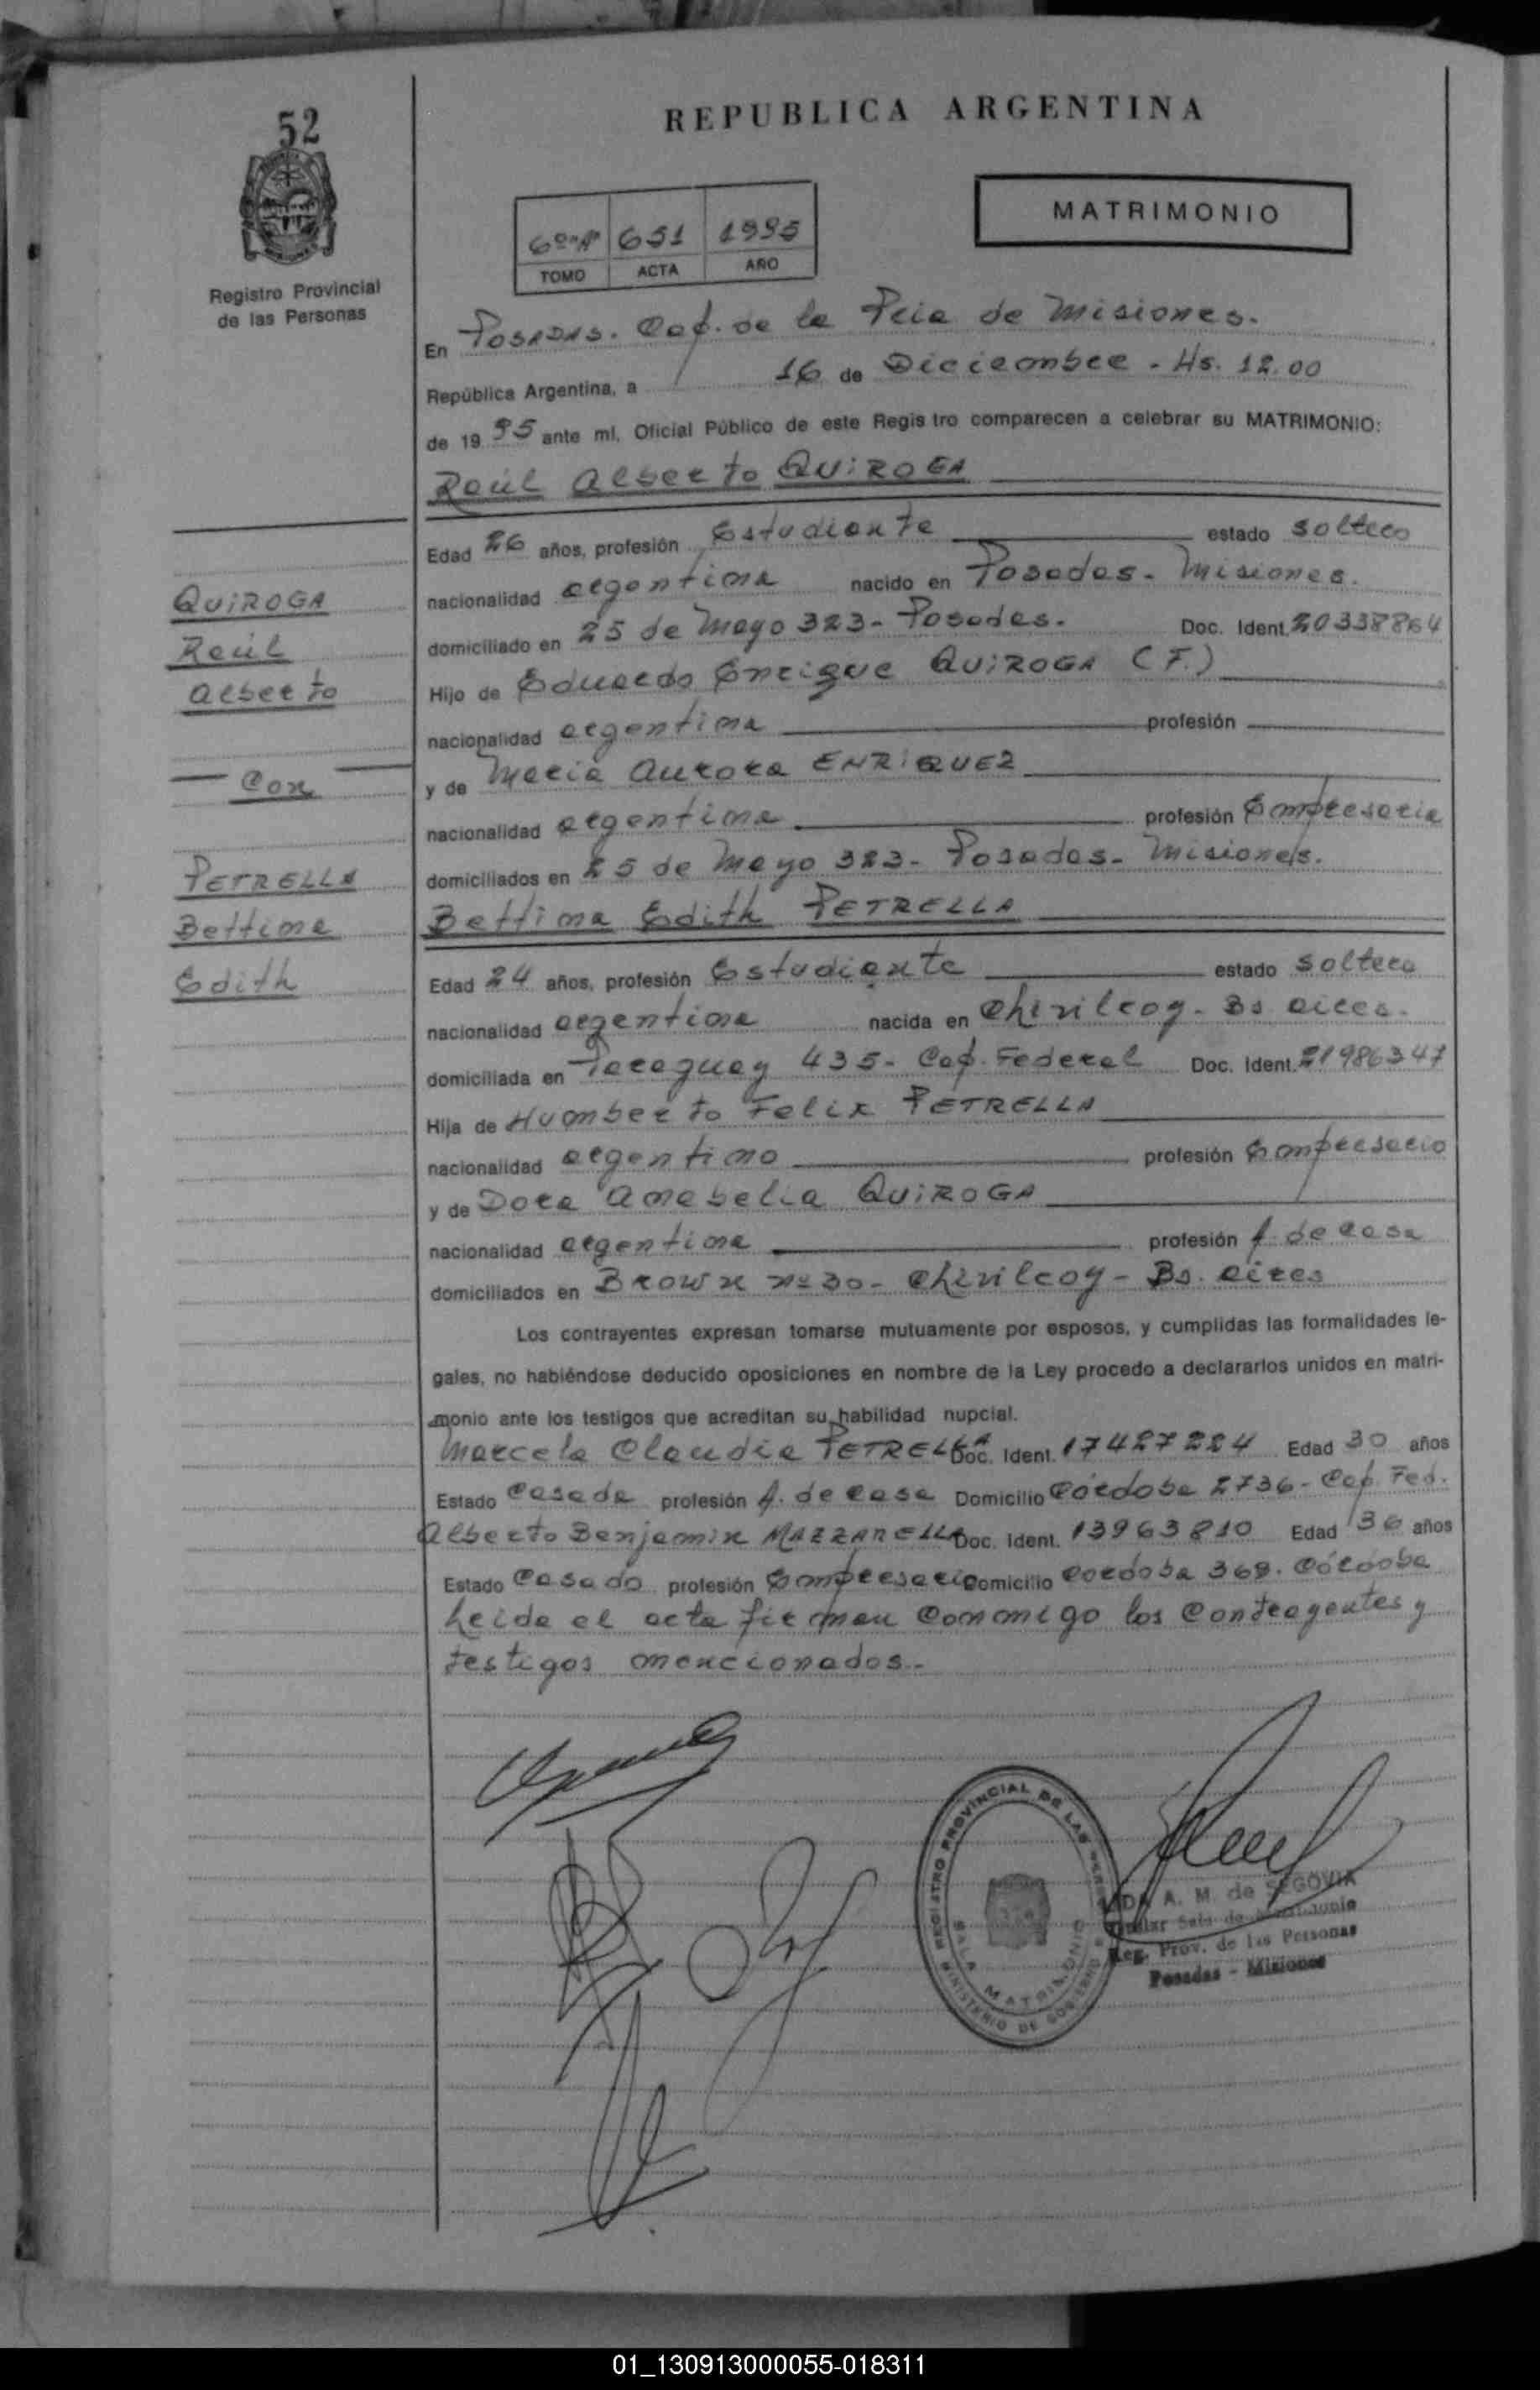 52
REPUBLICA ARGENTINA
MATRIMONIO
6º "A" 651 1995
TOMO ACTA AÑO
Registro Provincial
de las Personas
En Posadas. Cap. de la Pcia de Misiones.
República Argentina, a 16 de Diciembre - Hs. 12.00
de 19 95 ante mí, Oficial Público de este Regis tro comparecen a celebrar su MATRIMONIO:
Raúl Alberto QUIROGA
Edad 26 años, profesión Estudiante estado soltero
nacionalidad argentina nacido en Posadas - Misiones.
domiciliado en 25 de Mayo 323 - Posadas. Doc. Ident. 20338864
Hijo de Eduardo Enrique QUIROGA (F.)
nacionalidad argentina profesión
y de Maria Aurora ENRIQUEZ
nacionalidad argentina profesión Empresaria
domiciliados en 25 de Mayo 323 - Posadas - Misiones.
Bettina Edith PETRELLA
QUIROGA
Raúl
Alberto
Con
PETRELLA
Bettina
Edith
Edad 24 años, profesión Estudiante estado soltera
nacionalidad argentina nacida en Chivilcoy - Bs aires.
domiciliada en Paraguay 435 - Cap. Federal Doc. Ident. 21986347
Hija de Humberto Felix PETRELLA
nacionalidad argentino profesión Empresario
y de Dora Anabelia QUIROGA
nacionalidad argentina profesión A. de casa
domiciliados en Brown nº 30 - Chivilcoy - Bs. aires
Los contrayentes expresan tomarse mutuamente por esposos, y cumplidas las formalidades le-
gales, no habiéndose deducido oposiciones en nombre de la Ley procedo a declararlos unidos en matri-
monio ante los testigos que acreditan su habilidad nupcial.
Marcela Claudia PETRELLA Doc. Ident. 17427224 Edad 30 años
Estado Casada profesión A. de casa Domicilio Córdoba 2736 - Cap. Fed.
Alberto Benjamin MAZZARELLA Doc. Ident. 13963810 Edad 36 años
Estado Casado profesión Empresario Domicilio Cordoba 369. Córdoba
Leida el acta firman conmigo los contrayentes y
testigos mencionados.-
REGISTRO PROVINCIAL DE LAS PERSONAS
SALA MATRIMONIO
MINISTERIO DE GOBIERNO
A. M. de SEGOVIA
Titular Sala de Matrimonio
Reg. Prov. de las Personas
Posadas - Misiones
01_130913000055-018311